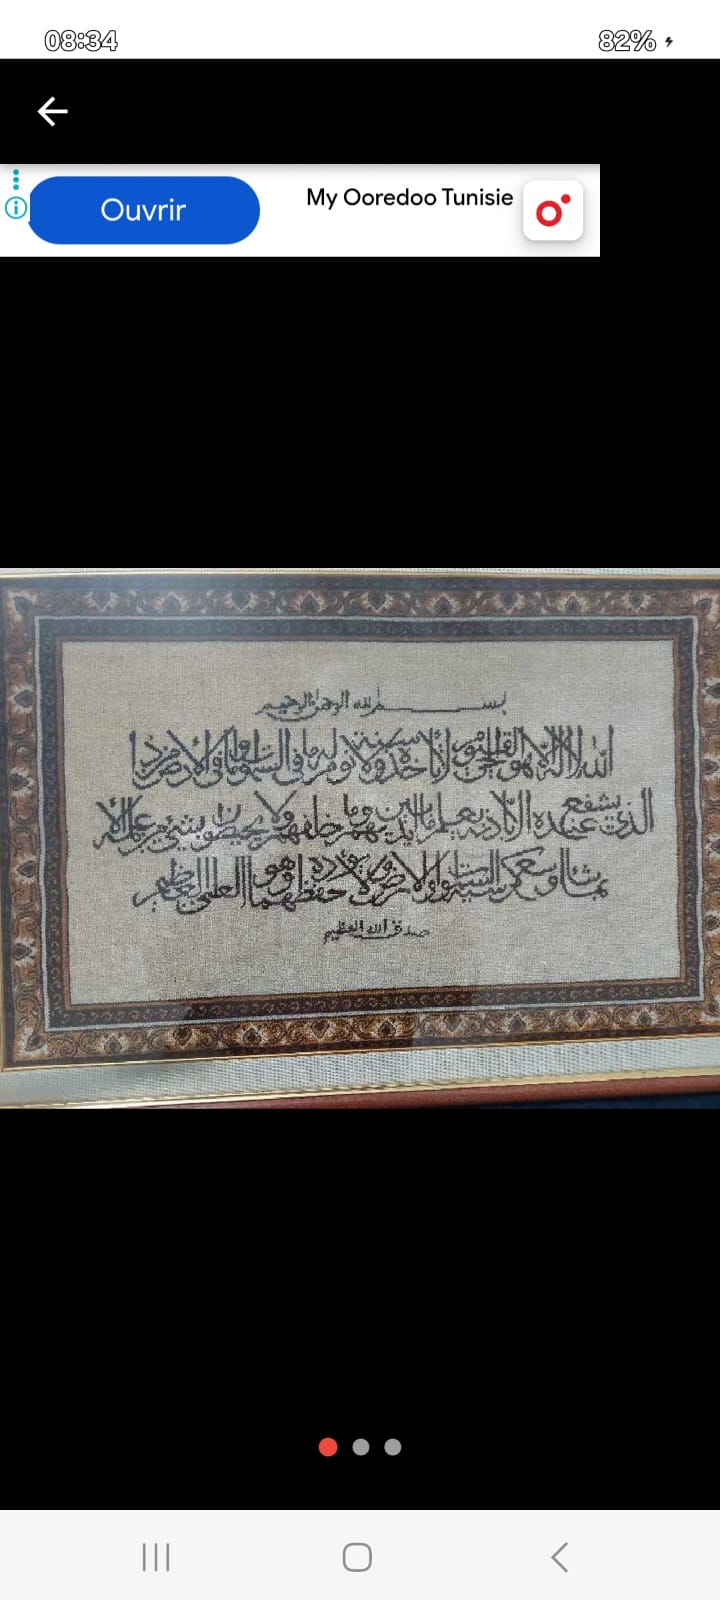 08:34
82%
Ouvrir
My Ooredoo Tunisie
بسم الله الرحمن الرحيم
الله لا اله الا هو الحي القيوم لا تاخذه سنة ولا نوم له ما في السموات وما في الارض من ذا
الذي يشفع عنده الا باذنه يعلم ما بين ايديهم وما خلفهم ولا يحيطون بشئ من علمه الا
بما شاء وسع كرسيه السموات والارض ولا يؤده حفظهما وهو العلي العظيم
صدق الله العظيم